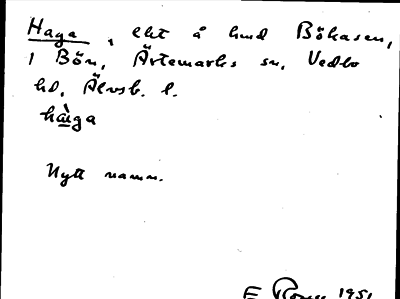 Haga, lht å hmd Bökasen,
1 Bön, Ärtemarks sn, Vedbo
hd, Älvsb. l.
hàga
Nytt namn.
E 1951